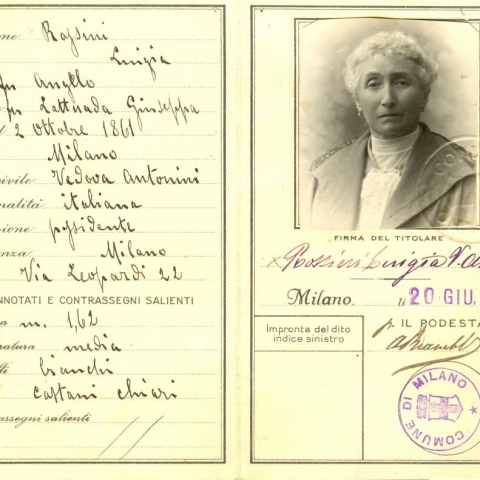 Rossini
Luigia
fu Angelo
fu Lattuada Giuseppa
2 Ottobre 1861
Milano
Vedova Antonini
italiana
possidente
Milano
Via Leopardi 22
NNOTATI E CONTRASSEGNI SALIENTI
m. 1,62
media
bianchi
castani chiari
assegni salienti
FIRMA DEL TITOLARE
Rossini Luigia V.
Milano. li 20 GIU.
Impronta del dito
indice sinistro
p. IL PODESTA
COMUNE DI MILANO